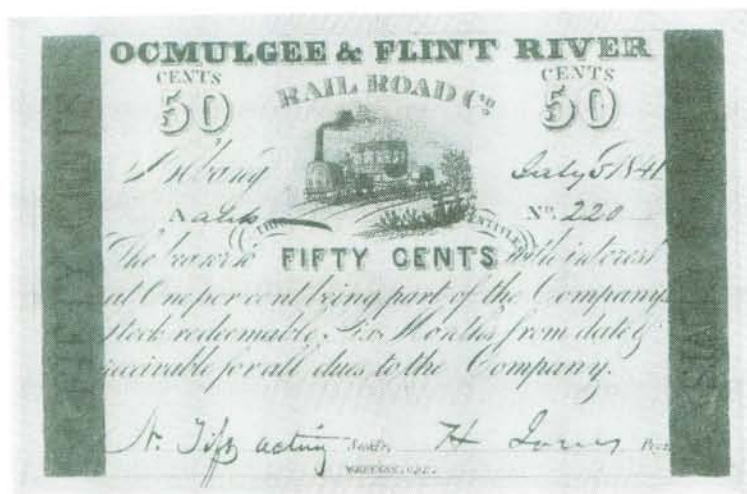 OCMULGEE & FLINT RIVER
CENTS CENTS
50 RAIL ROAD Co. 50
Albany July 5 1841
No. 220
THIS ENTITLES
The bearer to FIFTY CENTS with interest
at One per cent being part of the Company's
stock redeemable Six Months from date &
receivable for all dues to the Company.
N. Tift acting H
FIFTY CENTS
FIFTY CENTS